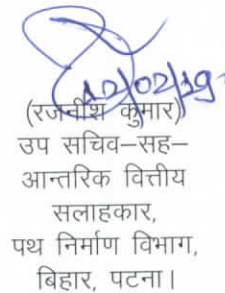 12/02/19
(रजनीश कुमार)
उप सचिव–सह–
आन्तरिक वित्तीय
सलाहकार,
पथ निर्माण विभाग,
बिहार, पटना।